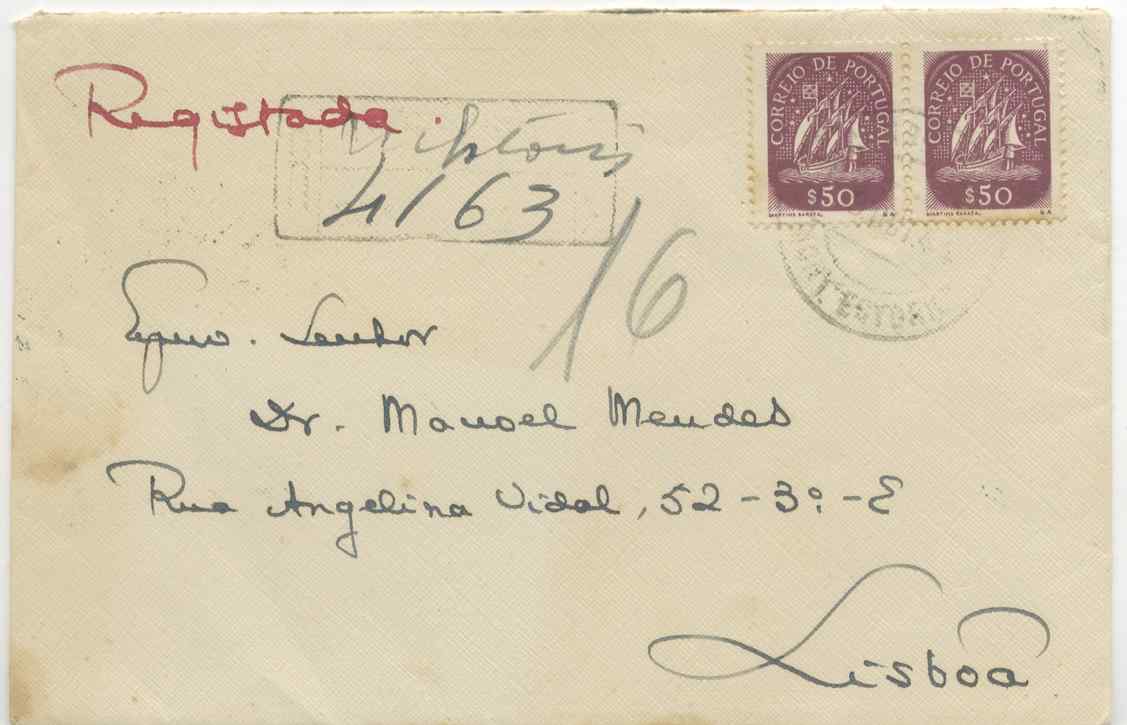 Registada.
Estoril
4163
16
CORREIO DE PORTUGAL
$50
MARTINS BARATA.
CORREIO DE PORTUGAL
$50
MARTINS BARATA.
ESTORIL
Exmo. Senhor
Dr. Manoel Mendes
Rua Angelina Vidal, 52-3º-E
Lisboa